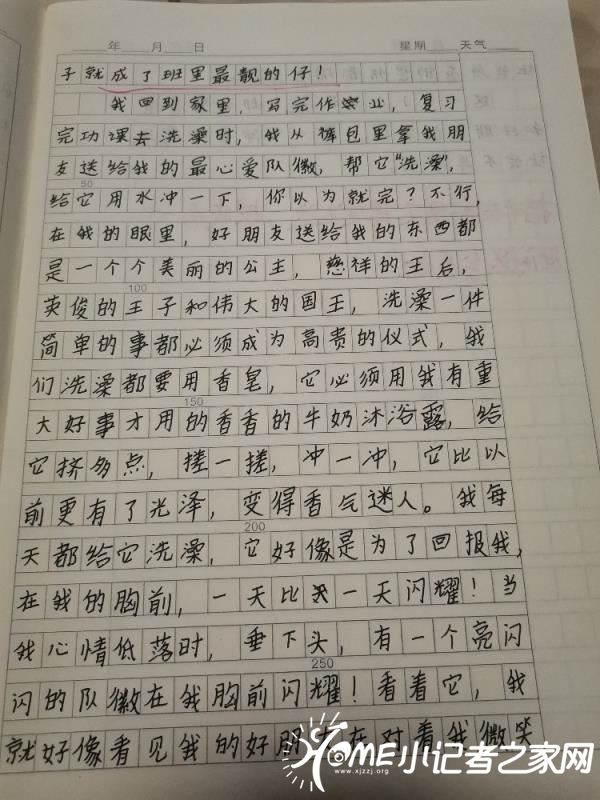 年 月 日 星期 天气
子就成了班里最靓的仔！
我回到家里，写完作业，复习
完功课去洗澡时，我从裤包里拿我朋
友送给我的最心爱队徽，帮它“洗澡”，
50
给它用水冲一下，你以为就完？不行，
在我的眼里，好朋友送给我的东西都
是一个个美丽的公主，慈祥的王后，
100
英俊的王子和伟大的国王，洗澡一件
简单的事都必须成为高贵的仪式，我
们洗澡都要用香皂，它必须用我有重
150
大好事才用的香香的牛奶沐浴露，给
它挤多点，搓一搓，冲一冲，它比以
前更有了光泽，变得香气迷人。我每
200
天都给它洗澡，它好像是为了回报我，
在我的胸前，一天比一天闪耀！当
我心情低落时，垂下头，有一个亮闪
250
闪的队徽在我胸前闪耀！看着它，我
就好像看见我的好朋友在对着我微笑
HOME小记者之家网
www.xjzzj.org